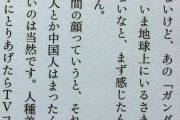 ないけど、あの「ガンダ
いま地球上にいるさま
ないなと、まず感じたん
ん。
間の顔っていうと、それ
人とか中国人はまった
いのは当然です。人種
にとりあげたらTVス